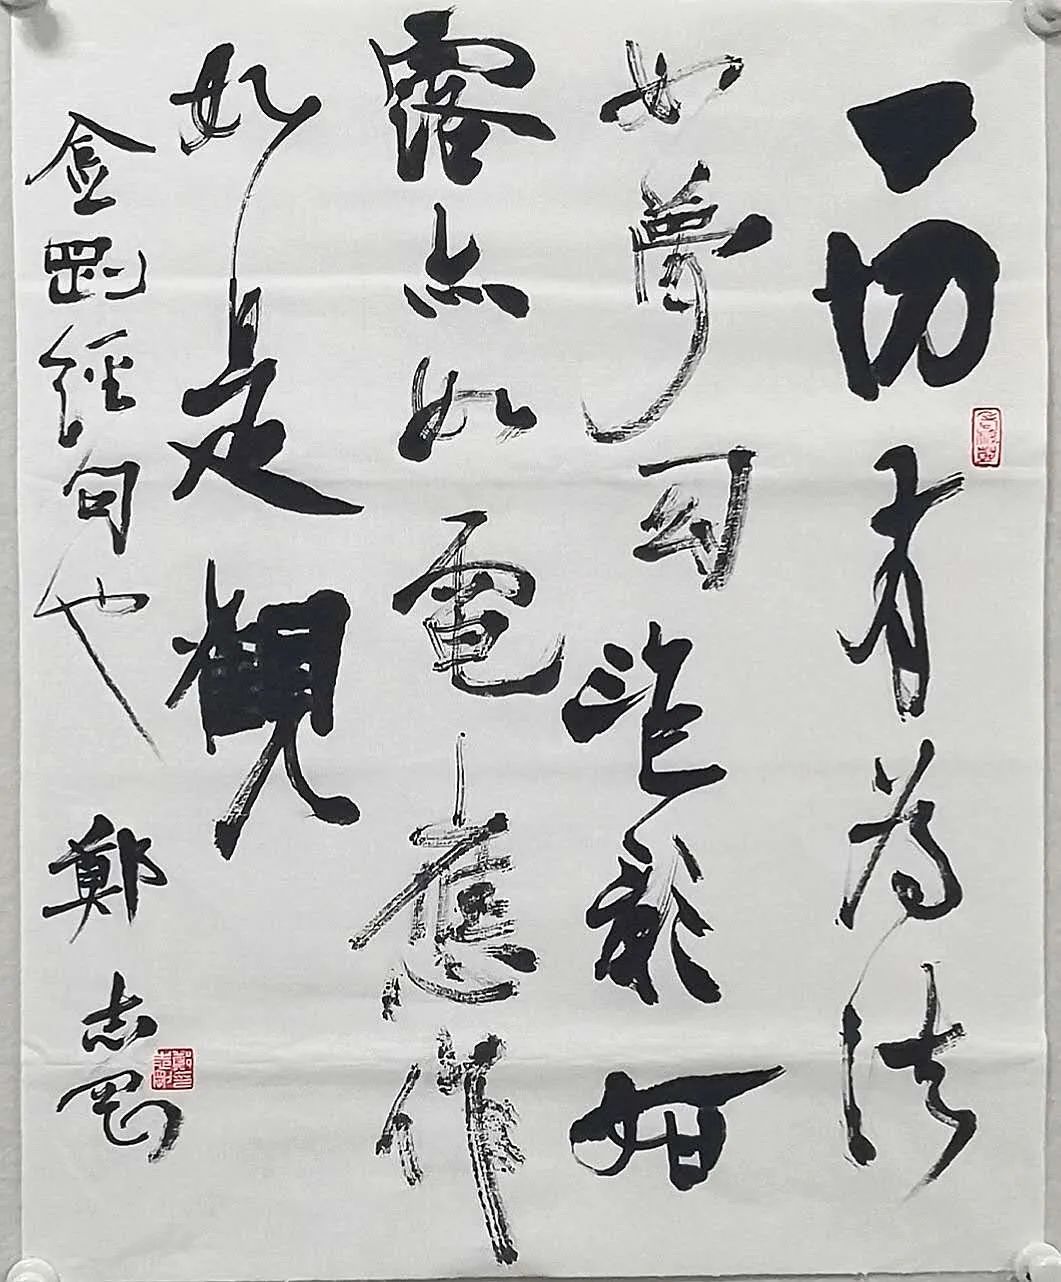 一切有為法
如夢幻泡影如
露亦如電應作
如是觀
金剛經句也 鄭志剛